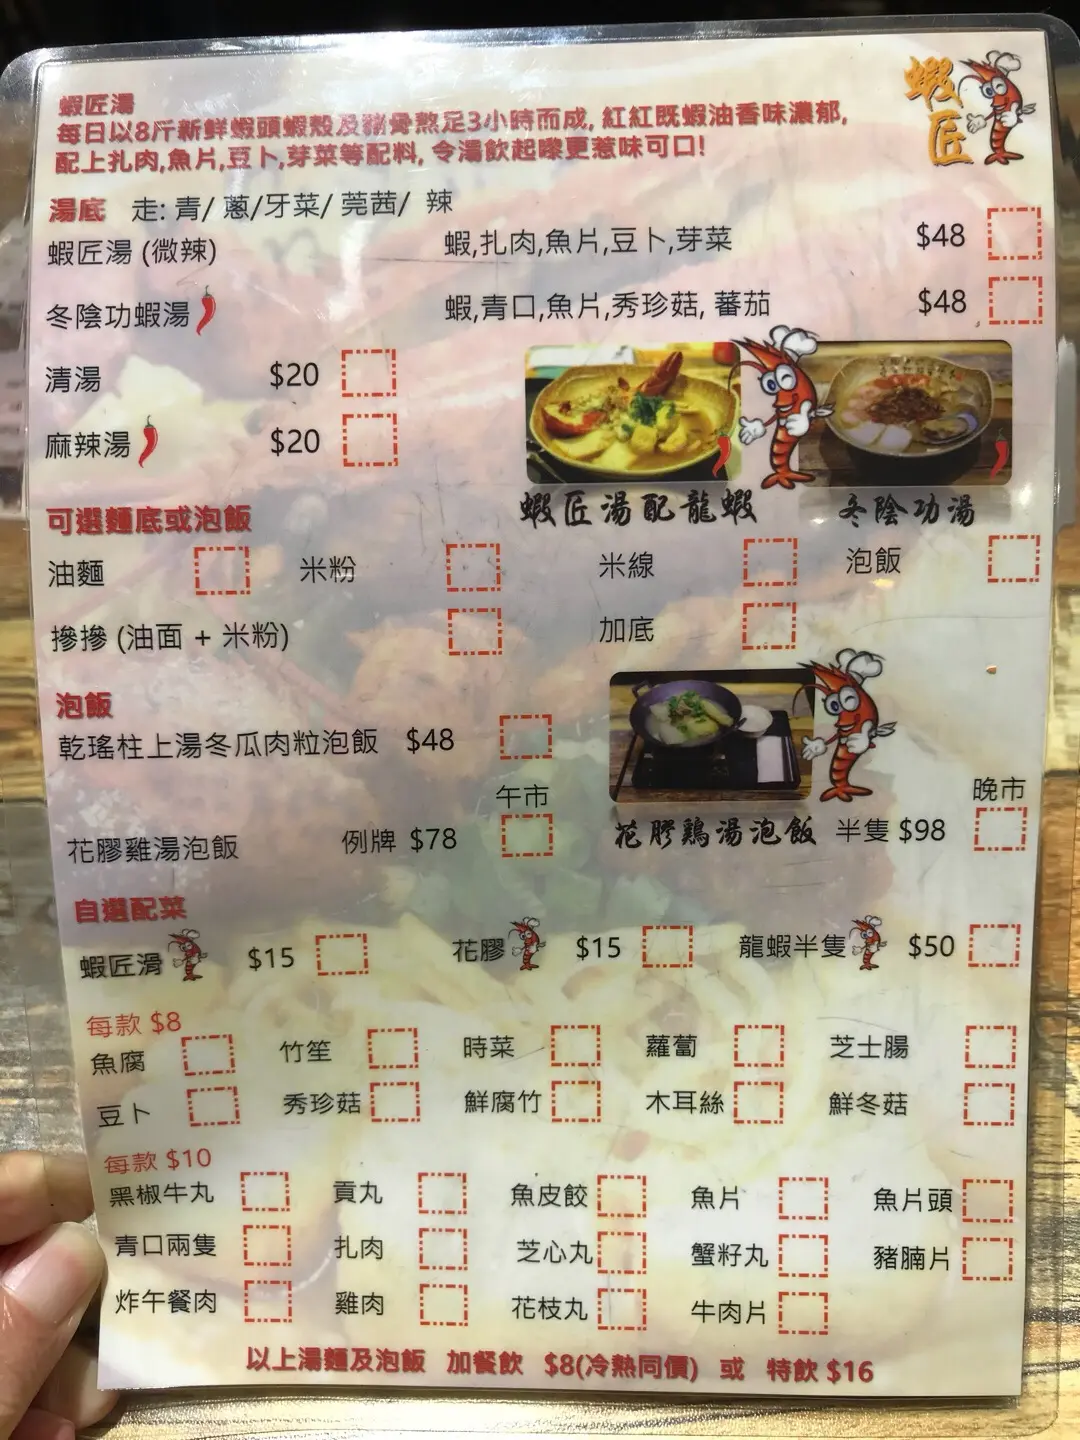 蝦匠
蝦匠湯
每日以8斤新鮮蝦頭蝦殼及豬骨熬足3小時而成, 紅紅既蝦油香味濃郁,
配上扎肉,魚片,豆卜,芽菜等配料, 令湯飲起嚟更惹味可口!
湯底 走: 青/ 蔥/牙菜/ 莞茜/ 辣
蝦匠湯 (微辣) 蝦,扎肉,魚片,豆卜,芽菜 $48
冬陰功蝦湯 蝦,青口,魚片,秀珍菇, 蕃茄 $48
清湯 $20
麻辣湯 $20
蝦匠湯配龍蝦 冬陰功湯
可選麵底或泡飯
油麵 米粉 米線 泡飯
摻摻 (油面 + 米粉) 加底
泡飯
乾瑤柱上湯冬瓜肉粒泡飯 $48
午市 晚市
花膠雞湯泡飯 例牌 $78 花膠鷄湯泡飯 半隻 $98
自選配菜
蝦匠滑 $15 花膠 $15 龍蝦半隻 $50
每款 $8
魚腐 竹笙 時菜 蘿蔔 芝士腸
豆卜 秀珍菇 鮮腐竹 木耳絲 鮮冬菇
每款 $10
黑椒牛丸 貢丸 魚皮餃 魚片 魚片頭
青口兩隻 扎肉 芝心丸 蟹籽丸 豬腩片
炸午餐肉 雞肉 花枝丸 牛肉片
以上湯麵及泡飯 加餐飲 $8(冷熱同價) 或 特飲 $16